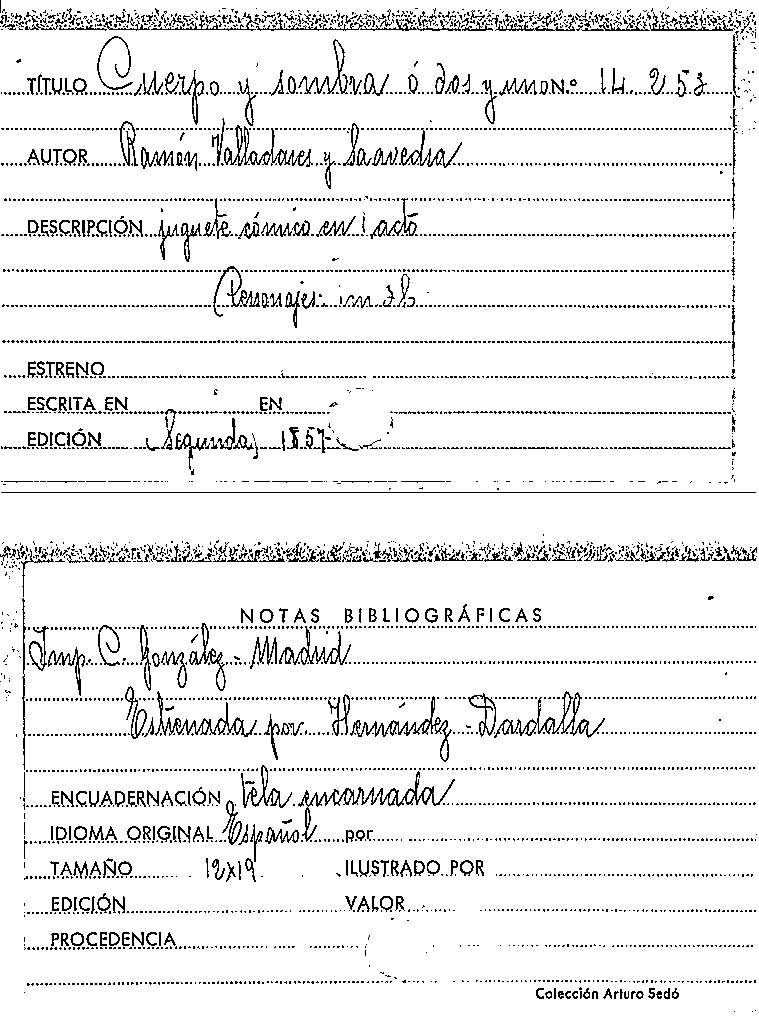 TÍTULO Cuerpo y sombra ó dos y uno N.º 14.253
AUTOR Ramón Valladares y Saavedra
DESCRIPCIÓN juguete cómico en 1 acto
(Personajes:
ESTRENO
ESCRITA EN EN
EDICIÓN (Segunda) 1857-
NOTAS BIBLIOGRÁFICAS
Imp. C. González - Madrid
Estrenada por Hernández - Dardalla
ENCUADERNACIÓN tela encarnada
IDIOMA ORIGINAL Español por
TAMAÑO 12x19 ILUSTRADO POR
EDICIÓN VALOR
PROCEDENCIA
Colección Arturo Sedó